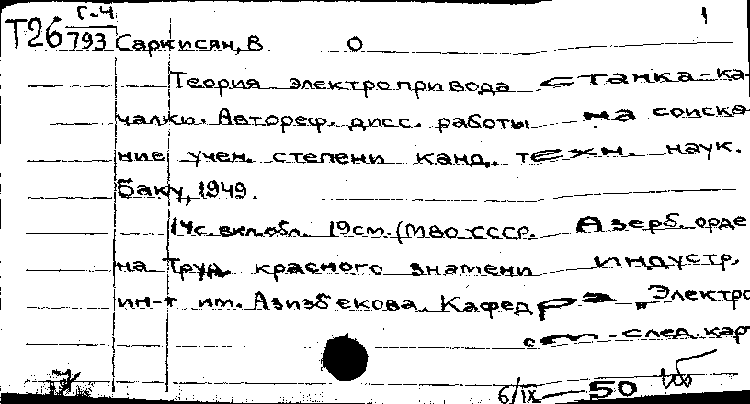 Г-4 1
Т26 793 Саркисян, В О
Теория электропривода станка-ка-
чалки. Автореф. дисс. работы на соиска
ние учен. степени канд. техн. наук.
Баку, 1949.
14с. вкл.обл. 19см. (МВО СССР. Азерб. орде
на Труд. красного знамени индустр.
ин-т им. Азизбекова. Кафедра „Электро
см. след. кар
6/IX-50